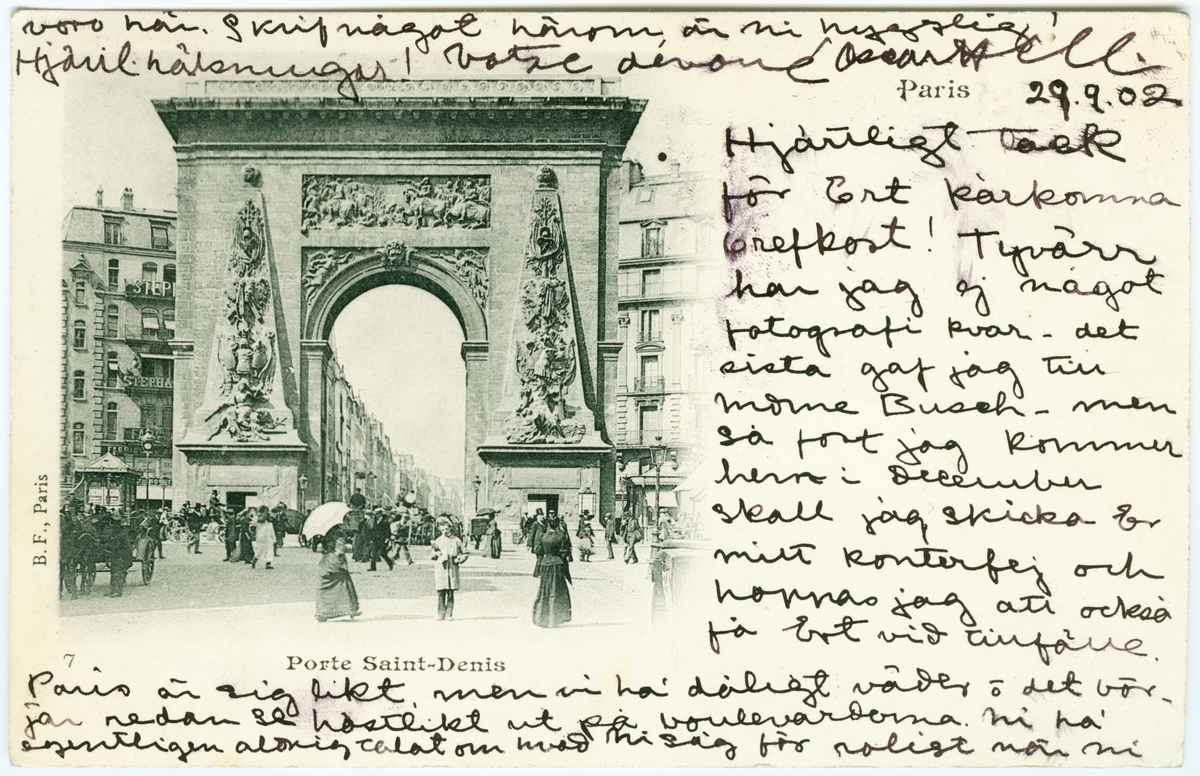 Paris
29.9.02
Hjärtligt tack
för Ert kärkomna
brefkost! Tyvärr
har jag ej något
fotografi kvar - det
sista gaf jag till
Busch - men
så fort jag kommer
hem i December
skall jag skicka Er
mitt konterfej och
hoppas jag att också
få Ert vid tillfälle.
Paris är sig likt, men vi ha' dåligt väder o det bör-
jar redan se höstlikt ut på boulevarderna. Ni ha'
egentligen aldrig talat om hvad Ni såg för roligt när ni
voro här. Skrif något härom, är ni hygglig!
Hjärtl. hälsningar! Votre dévoué Oscar
STEPH
STEPHA
B. F., Paris
7
Porte Saint-Denis